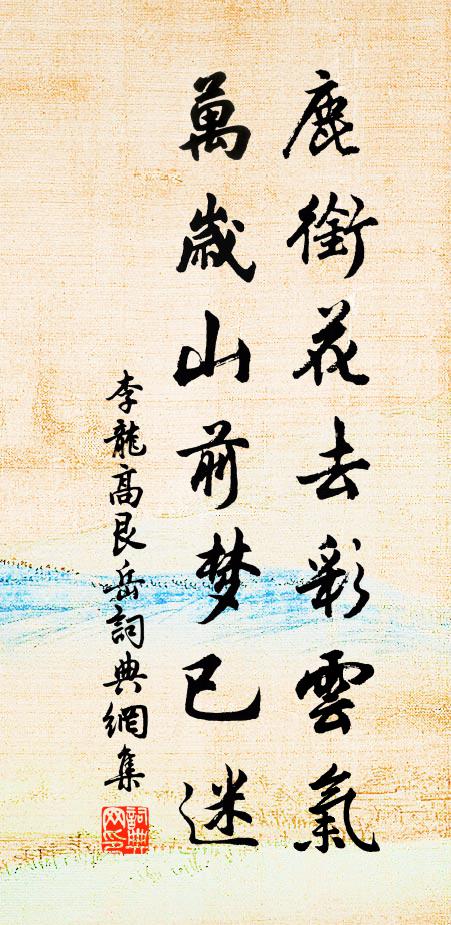 鹿銜花去彩雲氣
萬歲山前梦已迷
李龍高艮岳詞典網集